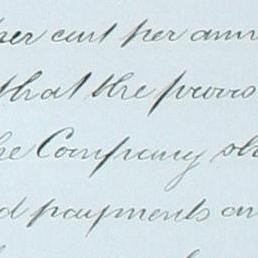 per cent per ann
that the provis
he Company sh
d payments on